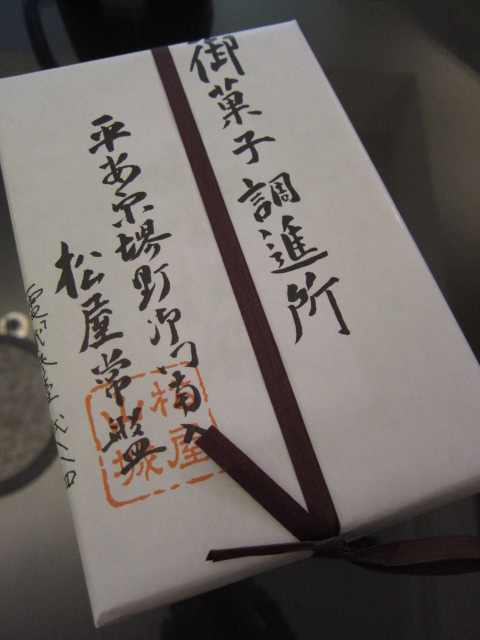 御菓子 調進所
平安京堺町御門南入
松屋常盤
松屋
山城